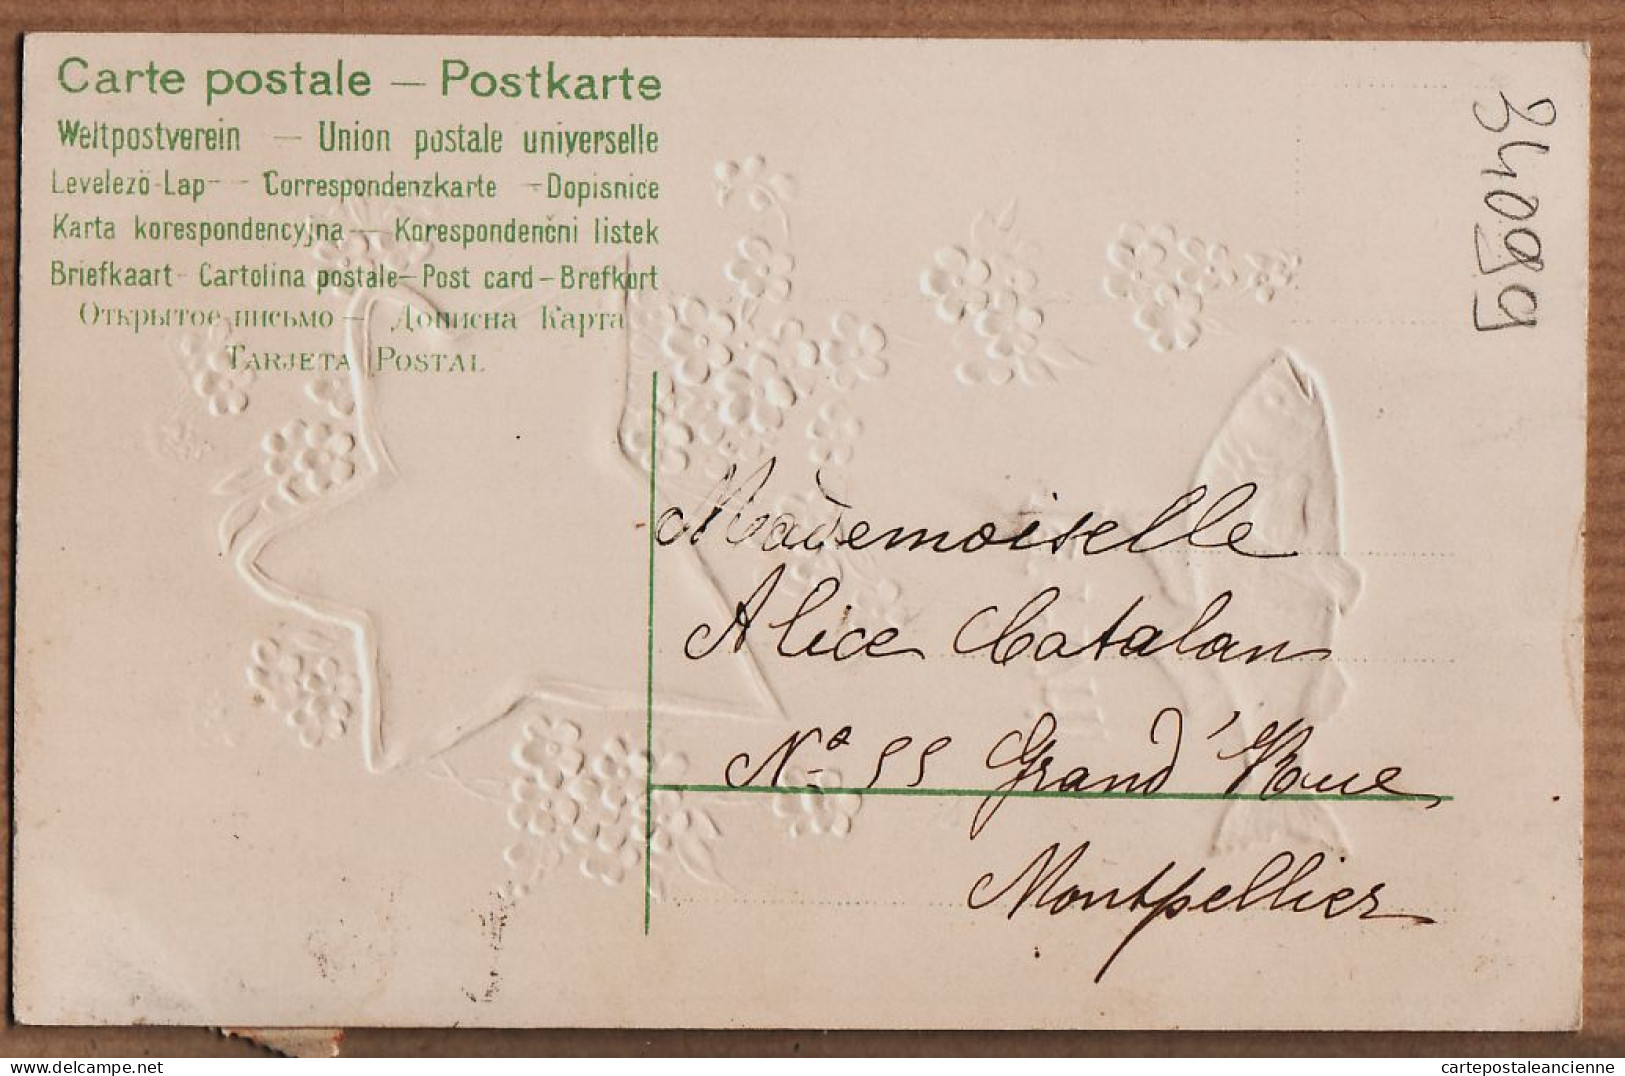 Carte postale — Postkarte
Weltpostverein — Union postale universelle
Levelező-Lap - Correspondenzkarte - Dopisnice
Karta korespondencyjna — Korespondenční listek
Briefkaart - Cartolina postale - Post card - Brefkort
Открытое письмо — Дописна Карта
TARJETA POSTAL
34099
Mademoiselle
Alice Catalan
Nº 55 Grand'Rue
Montpellier
delcampe.net
cartepostaleancienne